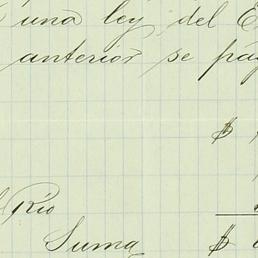 una ley del
anterior se
$
Rio
Suma $